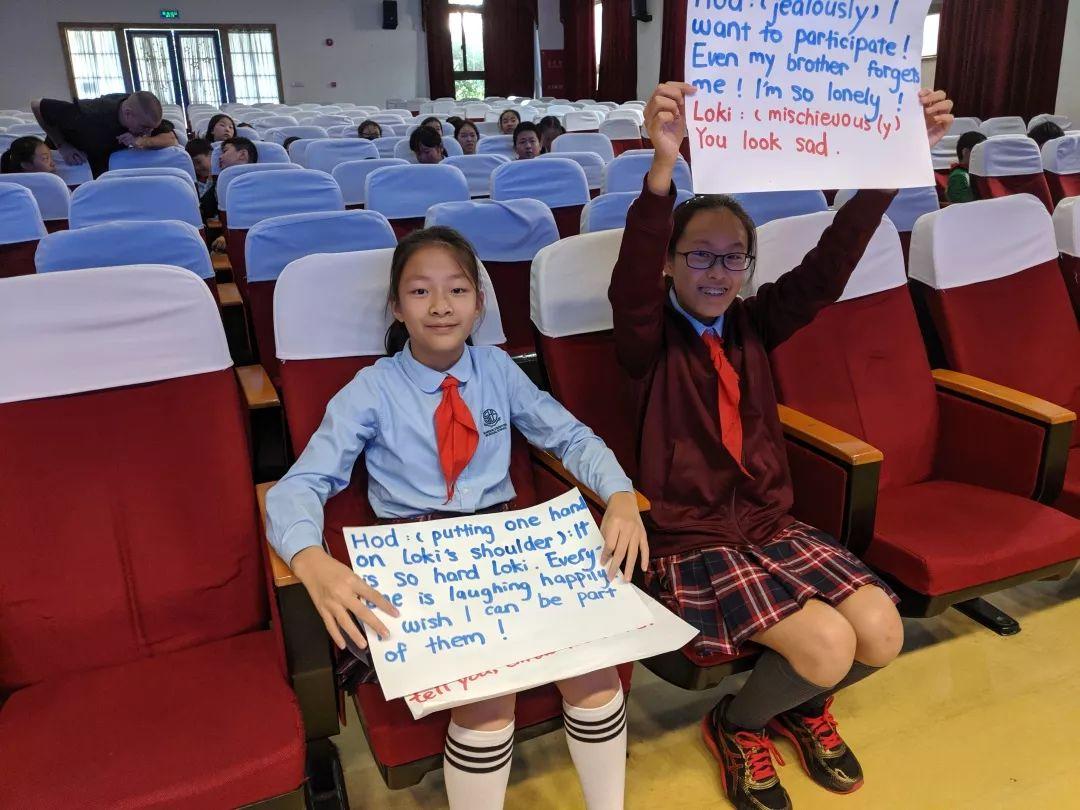 Hod : (jealously) I
want to participate !
Even my brother forgets
me ! I'm so lonely !
Loki : (mischievously)
You look sad .
Hod : (putting one hand
on Loki's shoulder) : It
is so hard Loki . Every-
one is laughing happily
I wish I can be part
of them !
tell you,